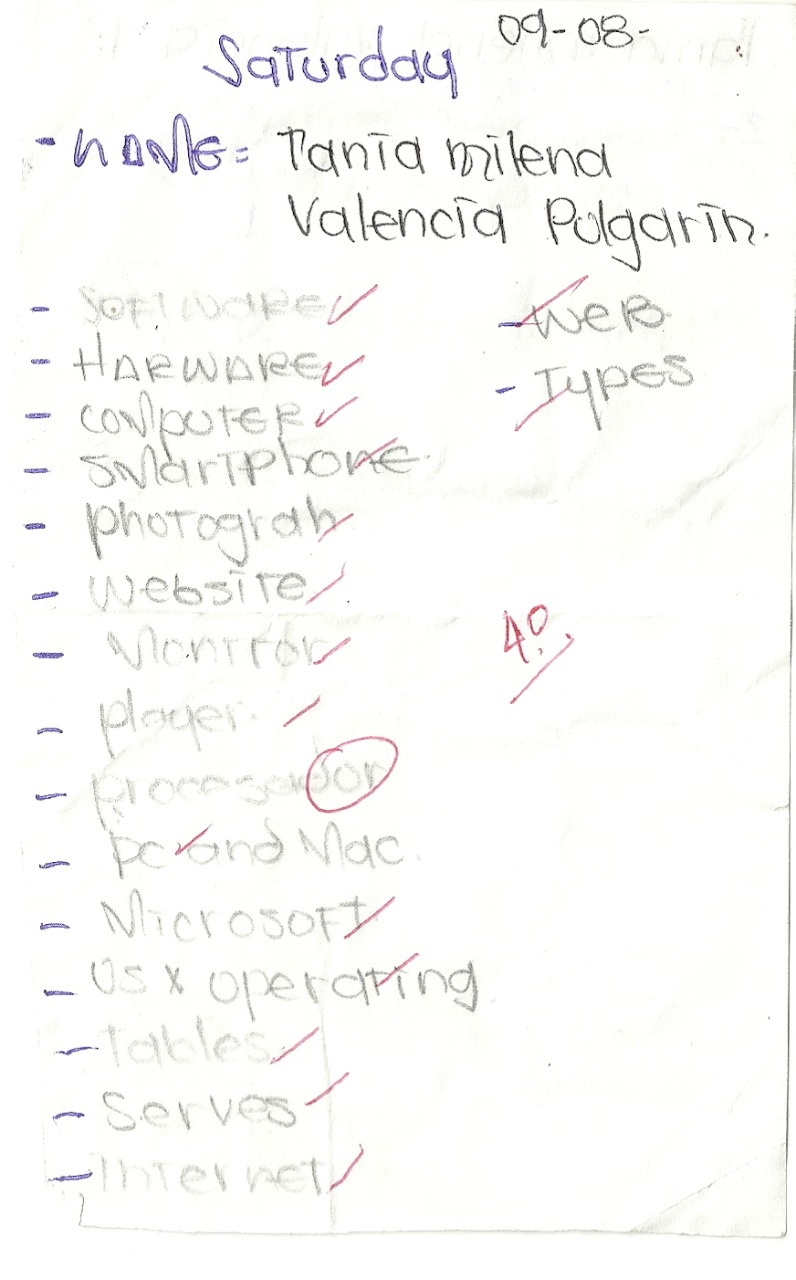 09-08-
Saturday
- NAME= Tania milena
Valencia Pulgarin.
- SOFTWARE
- HARWARE
- computer
- smartphone
- photograh
- website
- Monitor
- player
- procesador
- pc and Mac.
- Microsoft
- OS x operating
- tables
- Serves
- Internet
- WEB
- Types
4.0